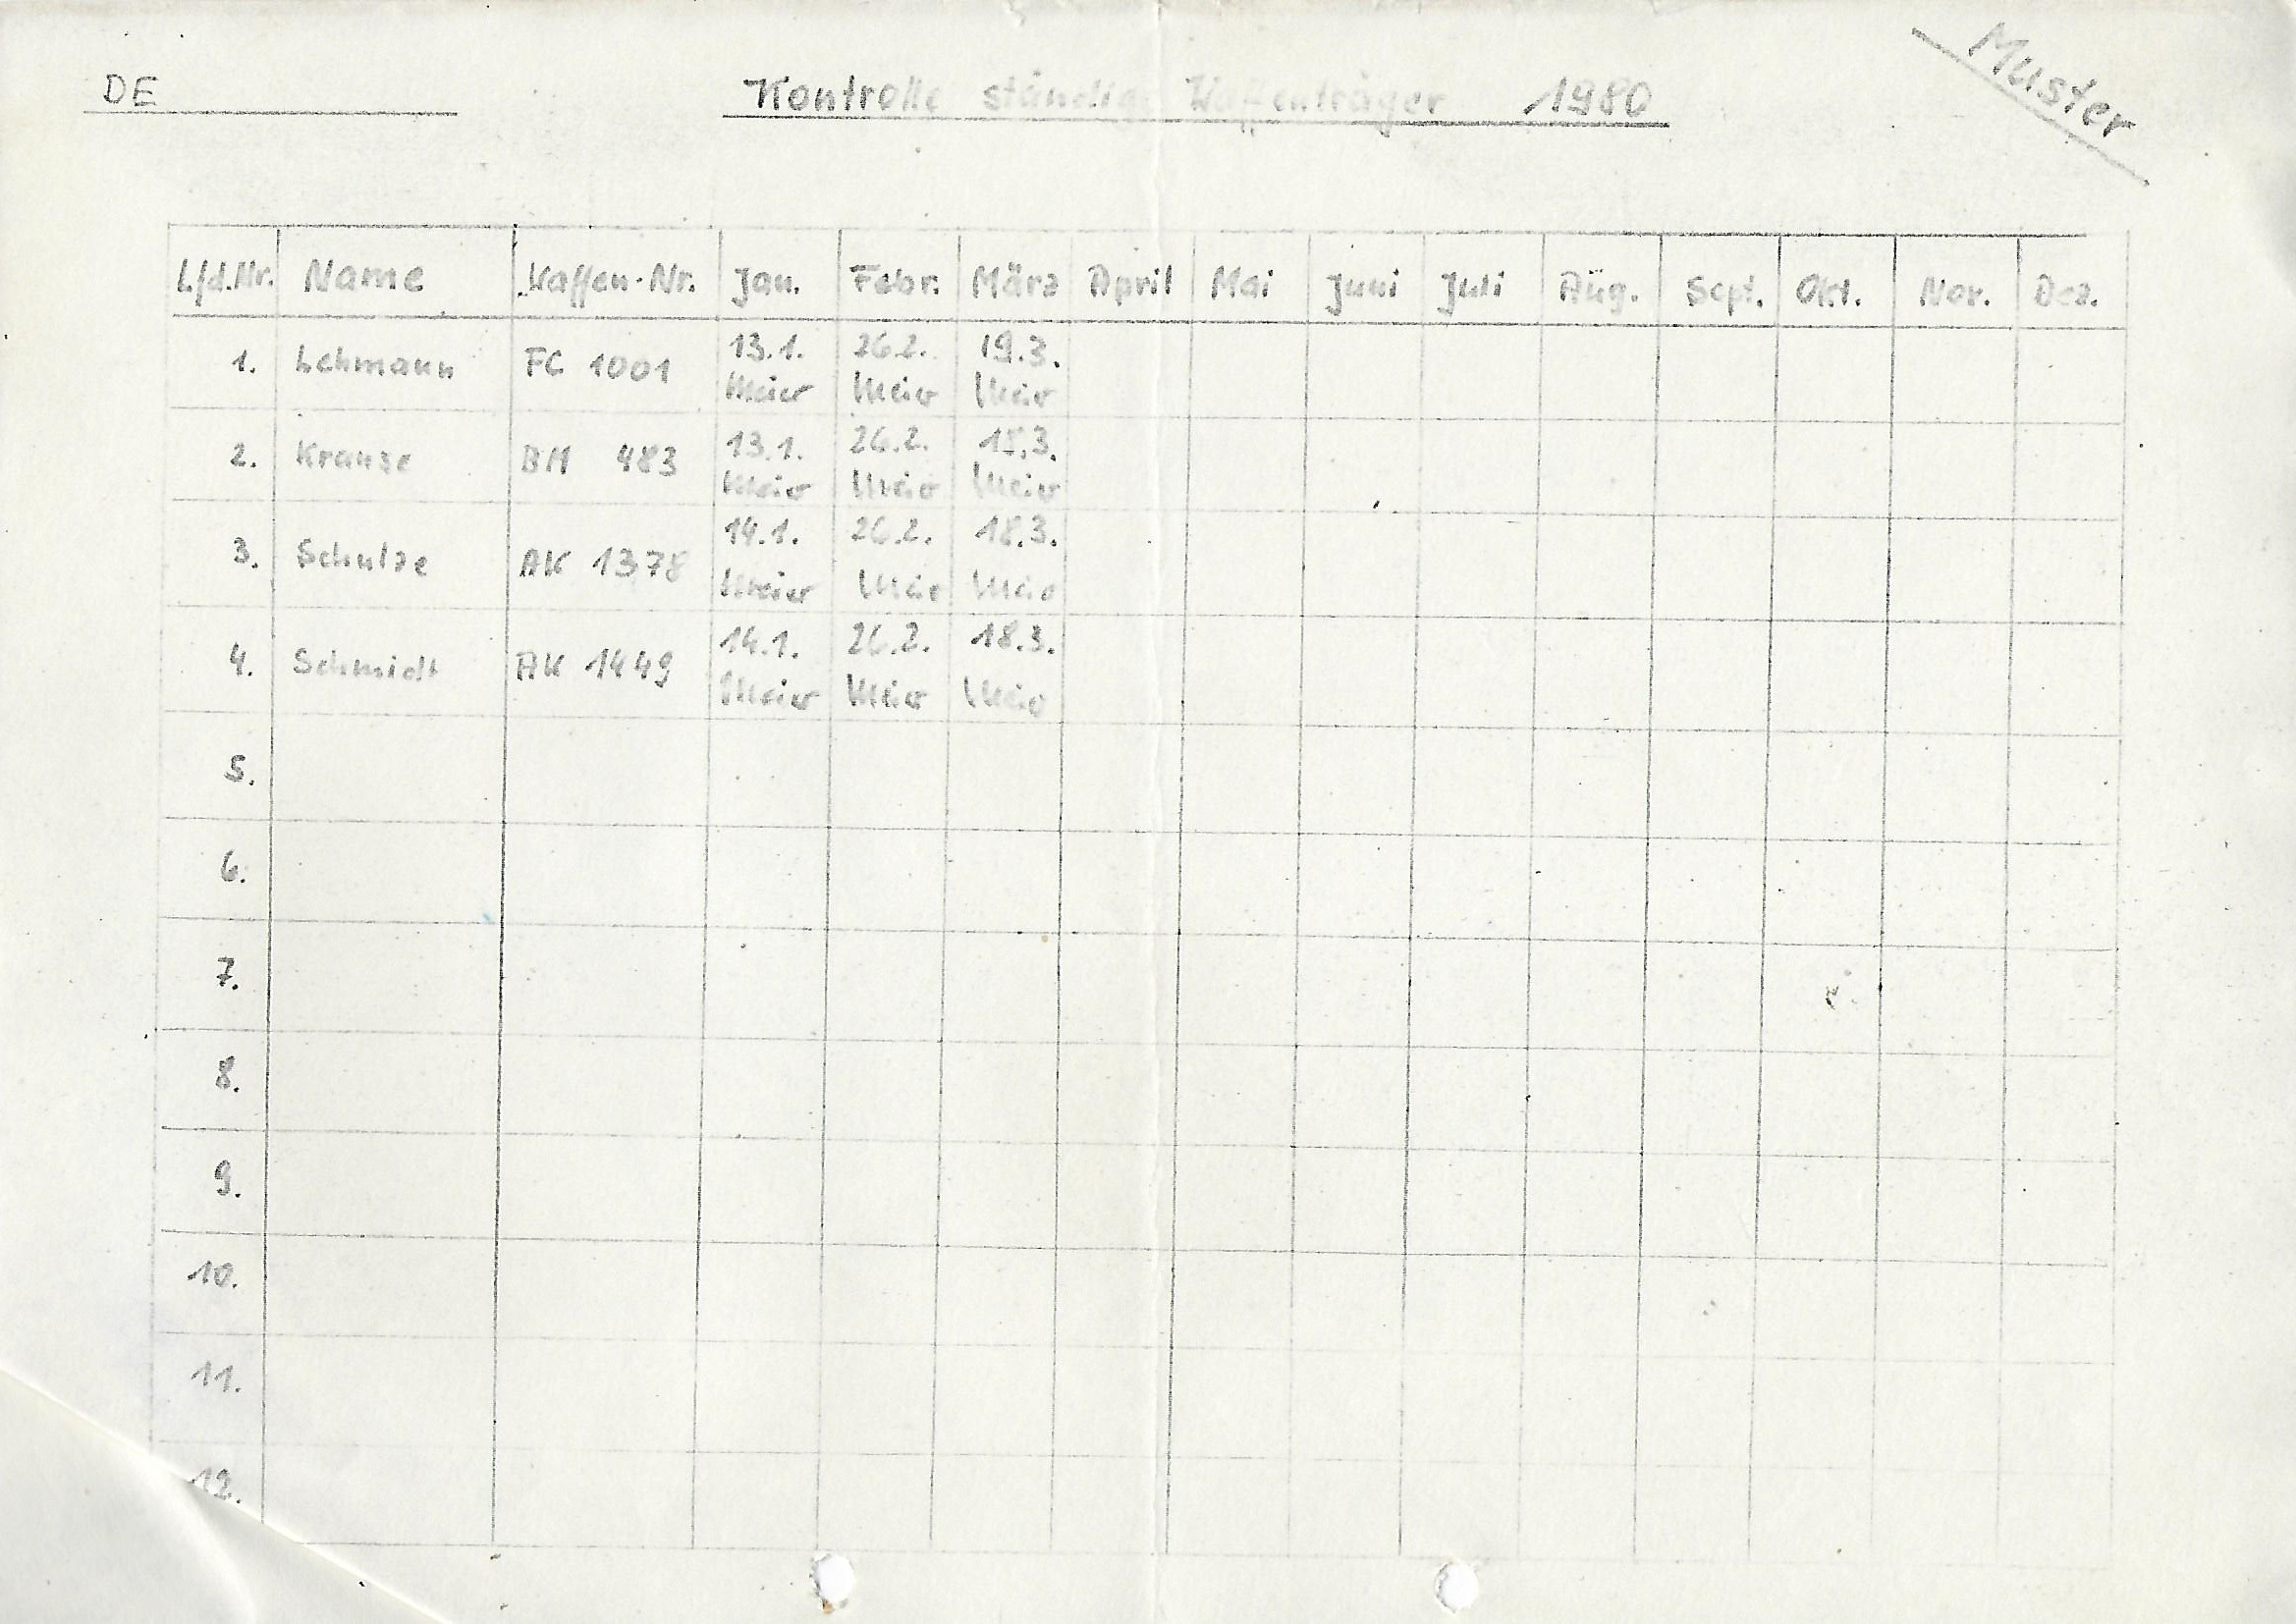 DE
Kontrolle ständige Waffenträger 1980
Muster
Lfd.Nr. Name Waffen-Nr. Jan. Febr. März April Mai Juni Juli Aug. Sept. Okt. Nov. Dez.
13.1. 26.2. 19.3.
1. Lehmann FC 1001
Meier Meier Meier
13.1. 26.2. 18.3.
2. Krause BM 483
Meier Meier Meier
14.1. 26.2. 18.3.
3. Schulze AK 1378
Meier Meier Meier
14.1. 26.2. 18.3.
4. Schmidt AK 1449
Meier Meier Meier
5.
6.
7.
8.
9.
10.
11.
12.